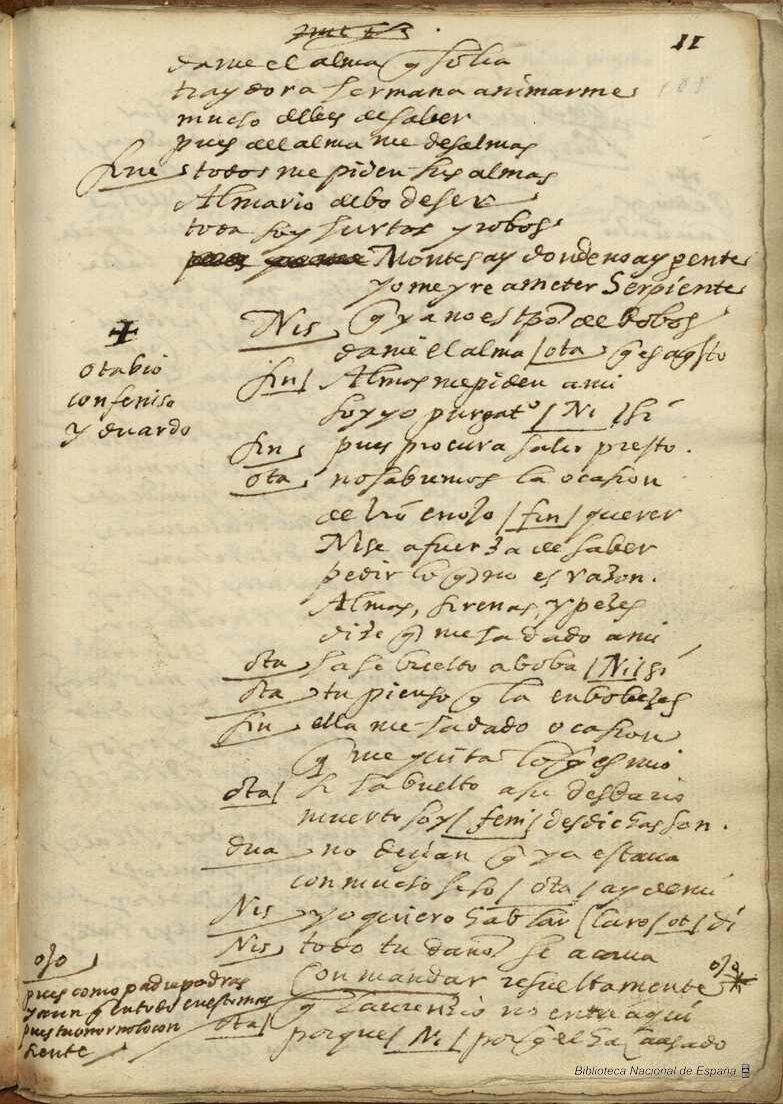 11
dame el alma q̄ solia
traydora hermana animarme
mucho debes de saber
pues del alma me desalmas
fine todos me piden sus almas
Almario debo de ser
toda soy hurtos y robos
Montes ay donde no ay gente
yo me yre a meter Serpiente
Nis q̄ ya no es tpo de bobos
dame el alma / ota q̄ es aqsto
fin Almas me piden a mi
soy yo purgato / Ni / si
fin pues procura salir presto.
ota no sabremos la ocasion
de vro enojo / fin / querer
Nise a fuerza de saber
pedir lo q̄ no es razon.
Almas, sirenas, y pezes
dize q̄ me ha dado a mi
ota ha se buelto a boba / Ni / si
ota tu pienso q̄ la enbobezes
fin ella me ha dado ocasion
q̄ me quita lo q̄ es mio
ota si ha buelto a su desbario
muerto soy / feni / desdichas son.
dua no dezian q̄ ya estava
con mucho seso / ota / ay de mi
Nis yo quiero hablar claro / ot / di
Nis todo tu daño se acava
con mandar resueltamente
q̄ Laurenzio no entre aqui
ota porque / Ni / por q̄ el ha causado
otabio
con feniso
y duardo
ojo
pues como padre podras
y aun q̄ en todo
pues tu onor no lo con
siente
ojo
Biblioteca Nacional de España